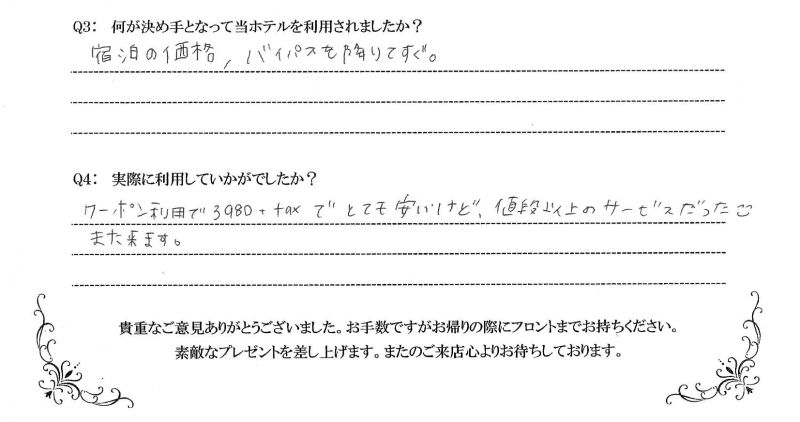 Q3: 何が決め手となって当ホテルを利用されましたか？
宿泊の価格, バイパスを降りてすぐ。
Q4: 実際に利用していかがでしたか？
クーポン利用で 3980 + tax で とても 安いけど、値段以上のサービスだった
また来ます。
貴重なご意見ありがとうございました。お手数ですがお帰りの際にフロントまでお持ちください。
素敵なプレゼントを差し上げます。またのご来店心よりお待ちしております。